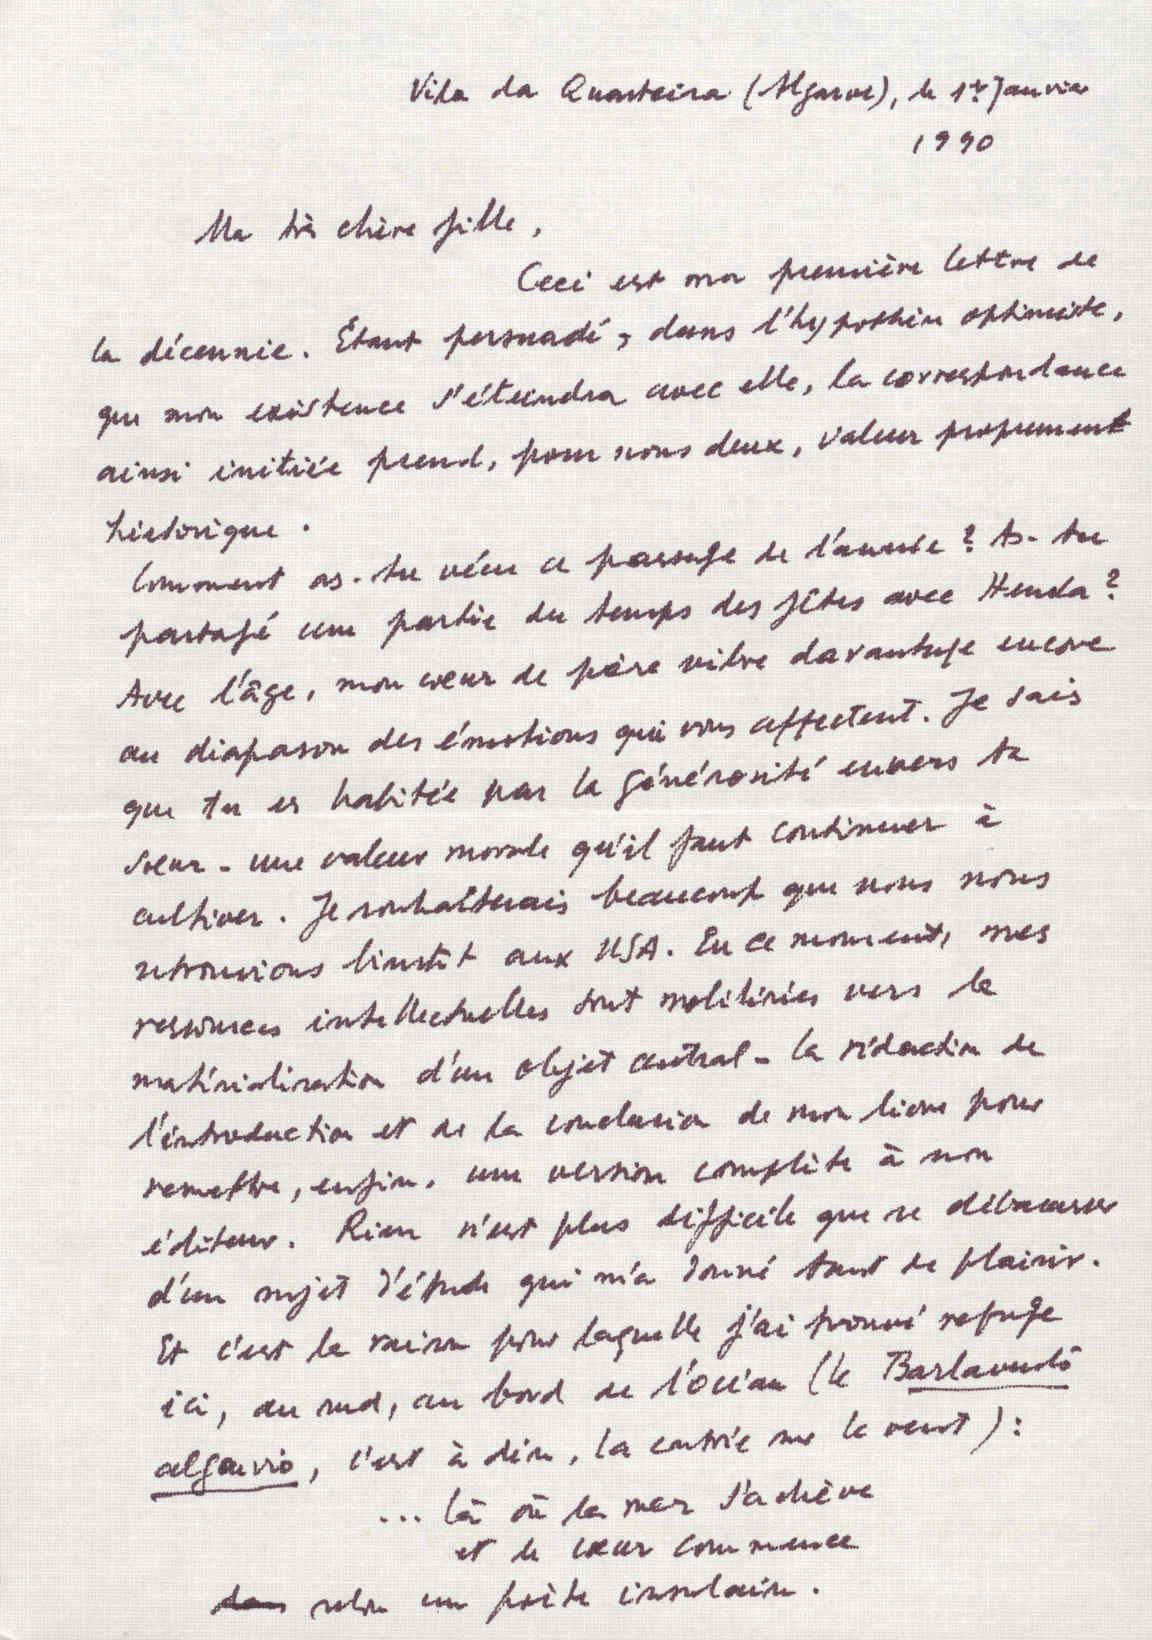 Vila da Quarteira (Algarve), le 1er Janvier
1990
Ma très chère fille,
Ceci est ma première lettre de
la décennie. Étant persuadé, dans l'hypothèse optimiste,
que mon existence s'éteindra avec elle, la correspondance
ainsi initiée prend, pour nous deux, valeur proprement
historique.
Comment as-tu vécu ce passage de l'année ? As-tu
partagé une partie du temps des fêtes avec Henda ?
Avec l'âge, mon cœur de père vibre davantage encore
au diapason des émotions qui vous affectent. Je sais
que tu es habitée par la générosité envers ta
sœur - une valeur morale qu'il faut continuer à
cultiver. Je souhaiterais beaucoup que nous nous
retrouvions bientôt aux USA. En ce moment, mes
ressources intellectuelles sont mobilisées vers la
matérialisation d'un objet central - la rédaction de
l'introduction et de la conclusion de mon livre pour
remettre, enfin, une version complète à mon
éditeur. Rien n'est plus difficile que se débarrasser
d'un sujet d'étude qui m'a donné tant de plaisir.
Et c'est la raison pour laquelle j'ai trouvé refuge
ici, au sud, au bord de l'Océan (le Barlavento
algarvio, c'est à dire, la contrée sur le vent) :
... là où la mer s'achève
et le cœur commence
selon un poète insulaire.